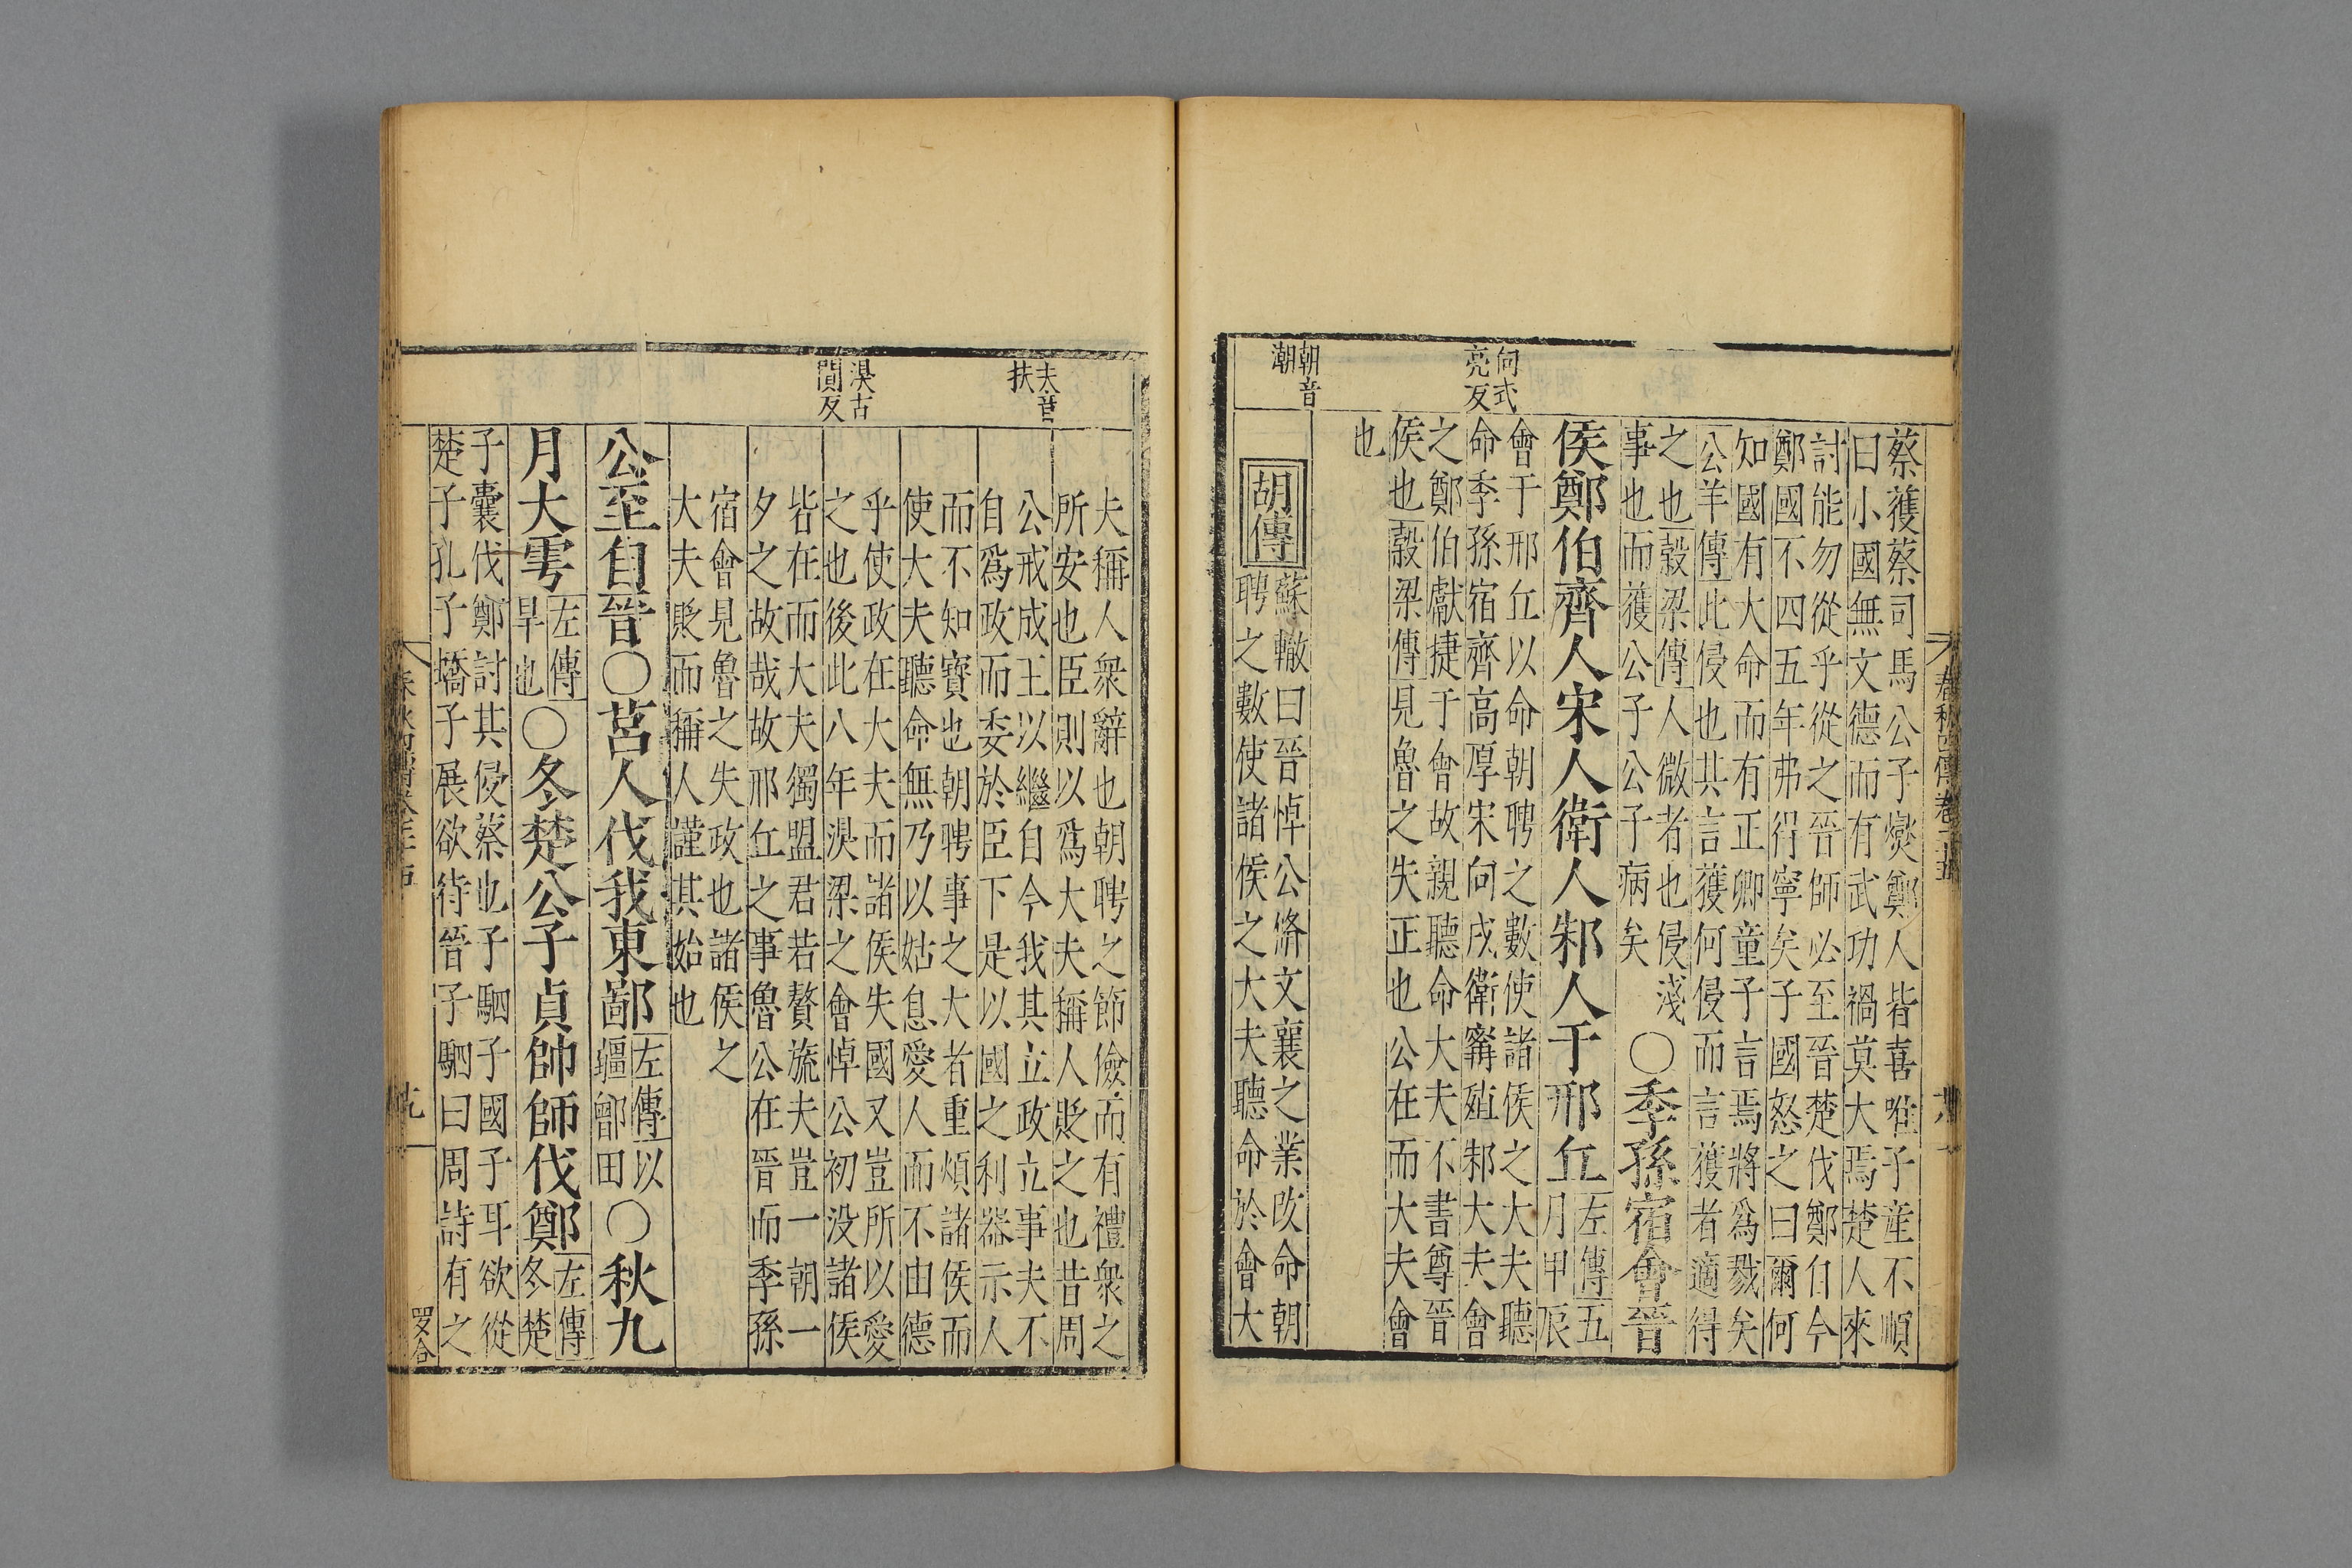 蔡獲蔡司馬公子燮鄭人皆喜唯子產不順
曰小國無文德而有武功禍莫大焉楚人來
討能勿從乎從之晉師必至晉楚伐鄭自今
鄭國不四五年弗得寧矣子國怒之曰爾何
知國有大命而有正卿童子言焉將爲戮矣
公羊傳此侵也其言獲何侵而言獲者適得
之也穀梁傳人微者也侵淺
事也而獲公子公子病矣
○季孫宿會晉
侯鄭伯齊人宋人衛人邾人于邢丘
左傳五
月甲辰
會于邢丘以命朝聘之數使諸侯之大夫聽
命季孫宿齊高厚宋向戌衛甯殖邾大夫會
之鄭伯獻捷于會故親聽命大夫不書尊晉
侯也穀梁傳見魯之失正也公在而大夫會
也
向式
亮反
胡傳
蘇轍曰晉悼公脩文襄之業改命朝
聘之數使諸侯之大夫聽命於會大
朝音
潮
夫稱人衆辭也朝聘之節儉而有禮衆之
所安也臣則以爲大夫稱人貶之也昔周
公戒成王以繼自今我其立政立事夫不
自爲政而委於臣下是以國之利器示人
而不知寶也朝聘事之大者重煩諸侯而
使大夫聽命無乃以姑息愛人而不由德
乎使政在大夫而諸侯失國又豈所以愛
之也後此八年湨梁之會悼公初没諸侯
皆在而大夫獨盟君若贅旒夫豈一朝一
夕之故哉故邢丘之事魯公在晉而季孫
宿會見魯之失政也諸侯之
大夫貶而稱人謹其始也
夫音
扶
湨古
閴反
公至自晉○莒人伐我東鄙
左傳以
疆鄫田
○秋九
月大雩
左傳
旱也
○冬楚公子貞帥師伐鄭
左傳
冬楚
子囊伐鄭討其侵蔡也子駟子國子耳欲從
楚子孔子蟜子展欲待晉子駟曰周詩有之